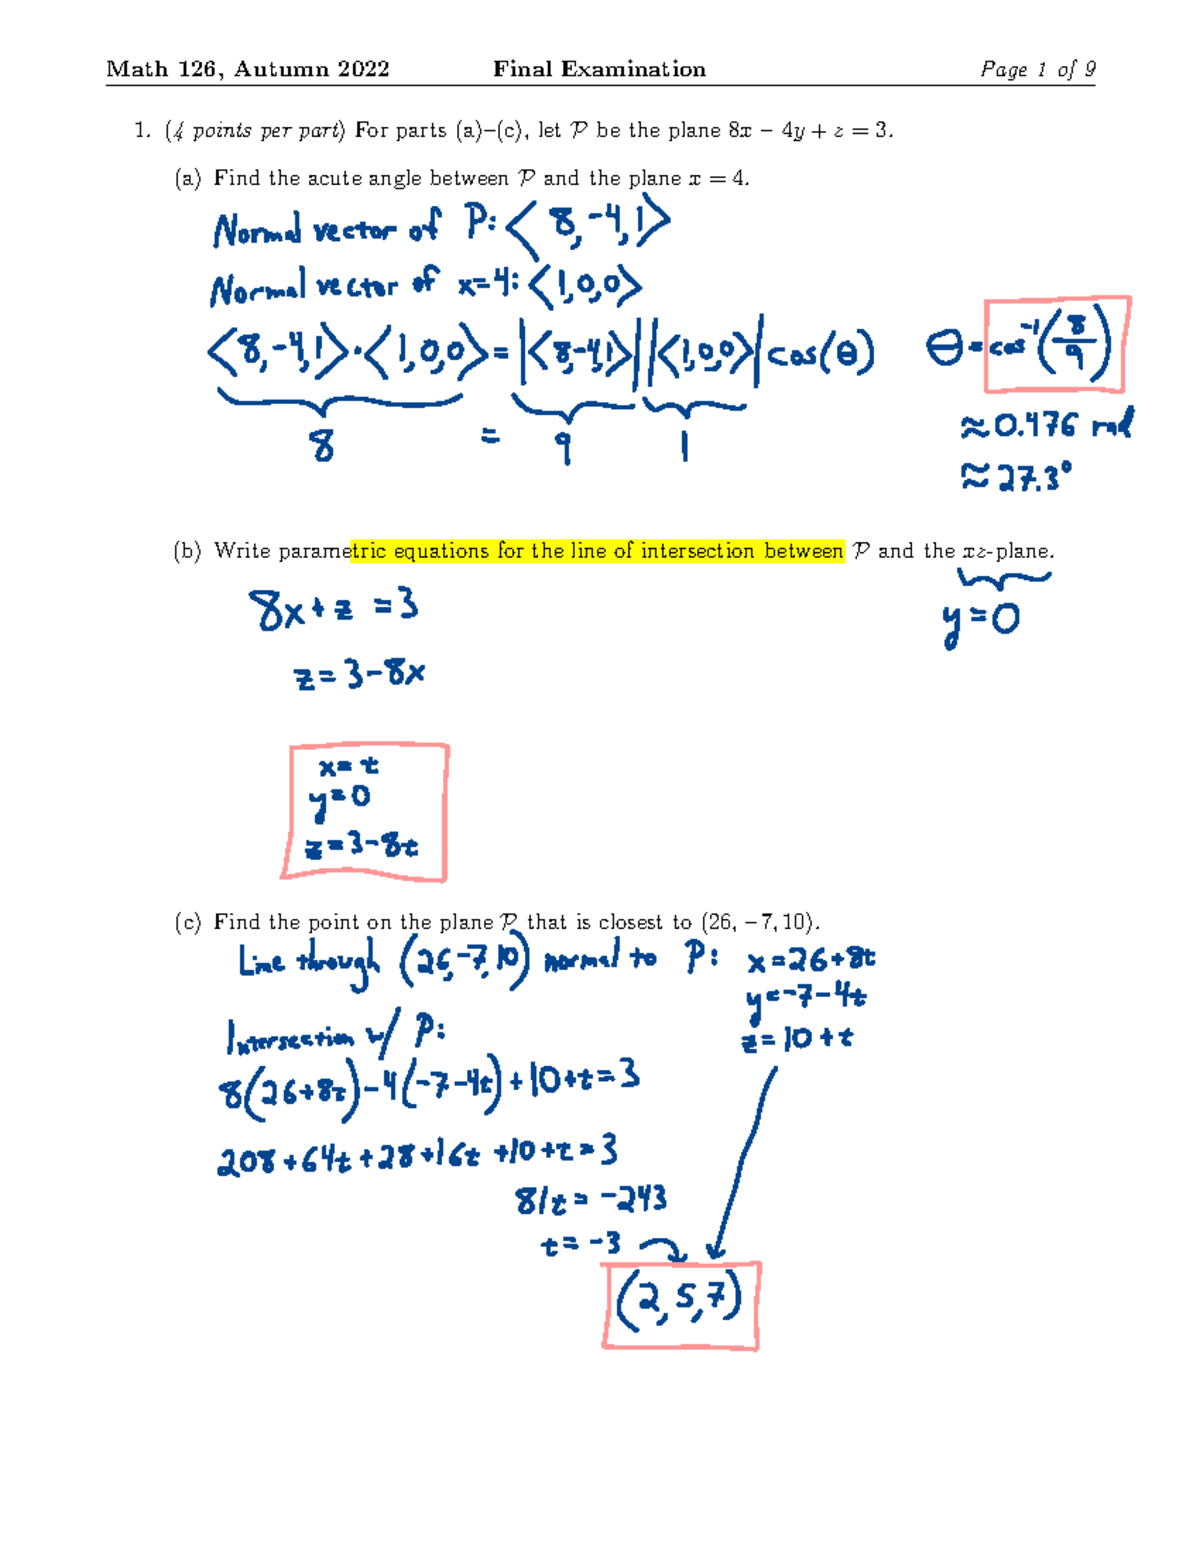 Math 126, Autumn 2022 Final Examination Page 1 of 9
1. (4 points per part) For parts (a)–(c), let P be the plane 8x − 4y + z = 3.
(a) Find the acute angle between P and the plane x = 4.
Normal vector of P: <8,-4,1>
Normal vector of x=4: <1,0,0>
<8,-4,1>·<1,0,0> = |<8,-4,1>||<1,0,0>|cos(θ)
8 = 9 1
θ = cos⁻¹(8/9)
≈0.476 rad
≈27.3°
(b) Write parametric equations for the line of intersection between P and the xz-plane.
y=0
8x+z =3
z=3-8x
x=t
y=0
z=3-8t
(c) Find the point on the plane P that is closest to (26, −7, 10).
Line through (26,-7,10) normal to P: x=26+8t
y=-7-4t
z=10+t
Intersection w/ P:
8(26+8t)-4(-7-4t)+10+t=3
208+64t+28+16t+10+t=3
81t=-243
t=-3
(2,5,7)